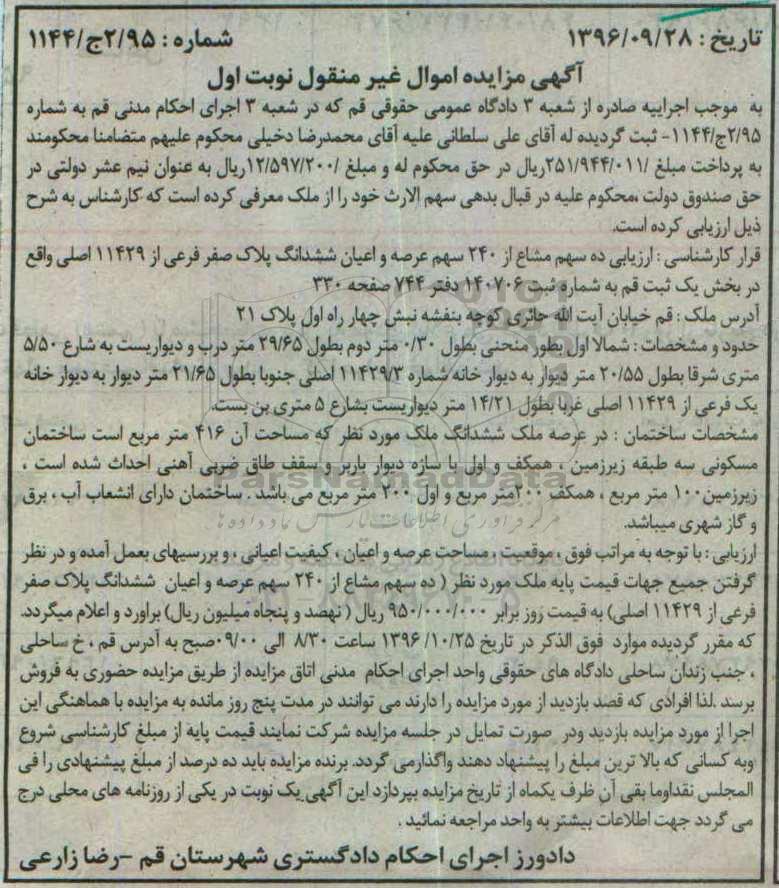 تاریخ : ۱۳۹۶/۰۹/۲۸
شماره : ۲/۹۵ج/۱۱۴۴
آگهی مزایده اموال غیر منقول نوبت اول
به موجب اجراییه صادره از شعبه ۳ دادگاه عمومی حقوقی قم که در شعبه ۳ اجرای احکام مدنی قم به شماره
۲/۹۵ج/۱۱۴۴- ثبت گردیده له آقای علی سلطانی علیه آقای محمدرضا دخیلی محکوم علیهم متضامنا محکومند
به پرداخت مبلغ /۲۵۱/۹۴۴/۰۱۱ریال در حق محکوم له و مبلغ /۱۲/۵۹۷/۲۰۰ریال به عنوان نیم عشر دولتی در
حق صندوق دولت ،محکوم علیه در قبال بدهی سهم الارث خود را از ملک معرفی کرده است که کارشناس به شرح
ذیل ارزیابی کرده است.
قرار کارشناسی : ارزیابی ده سهم مشاع از ۲۴۰ سهم عرصه و اعیان ششدانگ پلاک صفر فرعی از ۱۱۴۲۹ اصلی واقع
در بخش یک ثبت قم به شماره ثبت ۱۴۰۷۰۶ دفتر ۷۴۴ صفحه ۳۳۰
آدرس ملک : قم خیابان آیت الله حائری کوچه بنفشه نبش چهار راه اول پلاک ۲۱
حدود و مشخصات : شمالا اول بطور منحنی بطول ۰/۳۰ متر دوم بطول ۲۹/۶۵ متر درب و دیواریست به شارع ۵/۵۰
متری شرقا بطول ۲۰/۵۵ متر دیوار به دیوار خانه شماره ۱۱۴۲۹/۳ اصلی جنوبا بطول ۲۱/۶۵ متر دیوار به دیوار خانه
یک فرعی از ۱۱۴۲۹ اصلی غربا بطول ۱۴/۲۱ متر دیواریست بشارع ۵ متری بن بست.
مشخصات ساختمان : در عرصه ملک ششدانگ ملک مورد نظر که مساحت آن ۴۱۶ متر مربع است ساختمان
مسکونی سه طبقه زیرزمین ، همکف و اول با سازه دیوار باربر و سقف طاق ضربی آهنی احداث شده است ،
زیرزمین۱۰۰ متر مربع ، همکف ۲۰۰متر مربع و اول ۲۰۰ متر مربع می باشد . ساختمان دارای انشعاب آب ، برق
و گاز شهری میباشد.
ارزیابی : با توجه به مراتب فوق ، موقعیت ، مساحت عرصه و اعیان ، کیفیت اعیانی ، و بررسیهای بعمل آمده و در نظر
گرفتن جمیع جهات قیمت پایه ملک مورد نظر ( ده سهم مشاع از ۲۴۰ سهم عرصه و اعیان ششدانگ پلاک صفر
فرعی از ۱۱۴۲۹ اصلی) به قیمت روز برابر ۹۵۰/۰۰۰/۰۰۰ ریال ( نهصد و پنجاه میلیون ریال) براورد و اعلام میگردد.
که مقرر گردیده موارد فوق الذکر در تاریخ ۱۳۹۶/۱۰/۲۵ ساعت ۸/۳۰ الی ۰۹/۰۰صبح به آدرس قم ، خ ساحلی
، جنب زندان ساحلی دادگاه های حقوقی واحد اجرای احکام مدنی اتاق مزایده از طریق مزایده حضوری به فروش
برسد .لذا افرادی که قصد بازدید از مورد مزایده را دارند می توانند در مدت پنج روز مانده به مزایده با هماهنگی این
اجرا از مورد مزایده بازدید ودر صورت تمایل در جلسه مزایده شرکت نمایند قیمت پایه از مبلغ کارشناسی شروع
وبه کسانی که بالا ترین مبلغ را پیشنهاد دهند واگذارمی گردد. برنده مزایده باید ده درصد از مبلغ پیشنهادی را فی
المجلس نقداوما بقی آن ظرف یکماه از تاریخ مزایده بپردازد این آگهی یک نوبت در یکی از روزنامه های محلی درج
می گردد جهت اطلاعات بیشتر به واحد مراجعه نمائید .
دادورز اجرای احکام دادگستری شهرستان قم -رضا زارعی
ParsNamadData
مرکز فرآوری اطلاعات پارس نماد داده ها